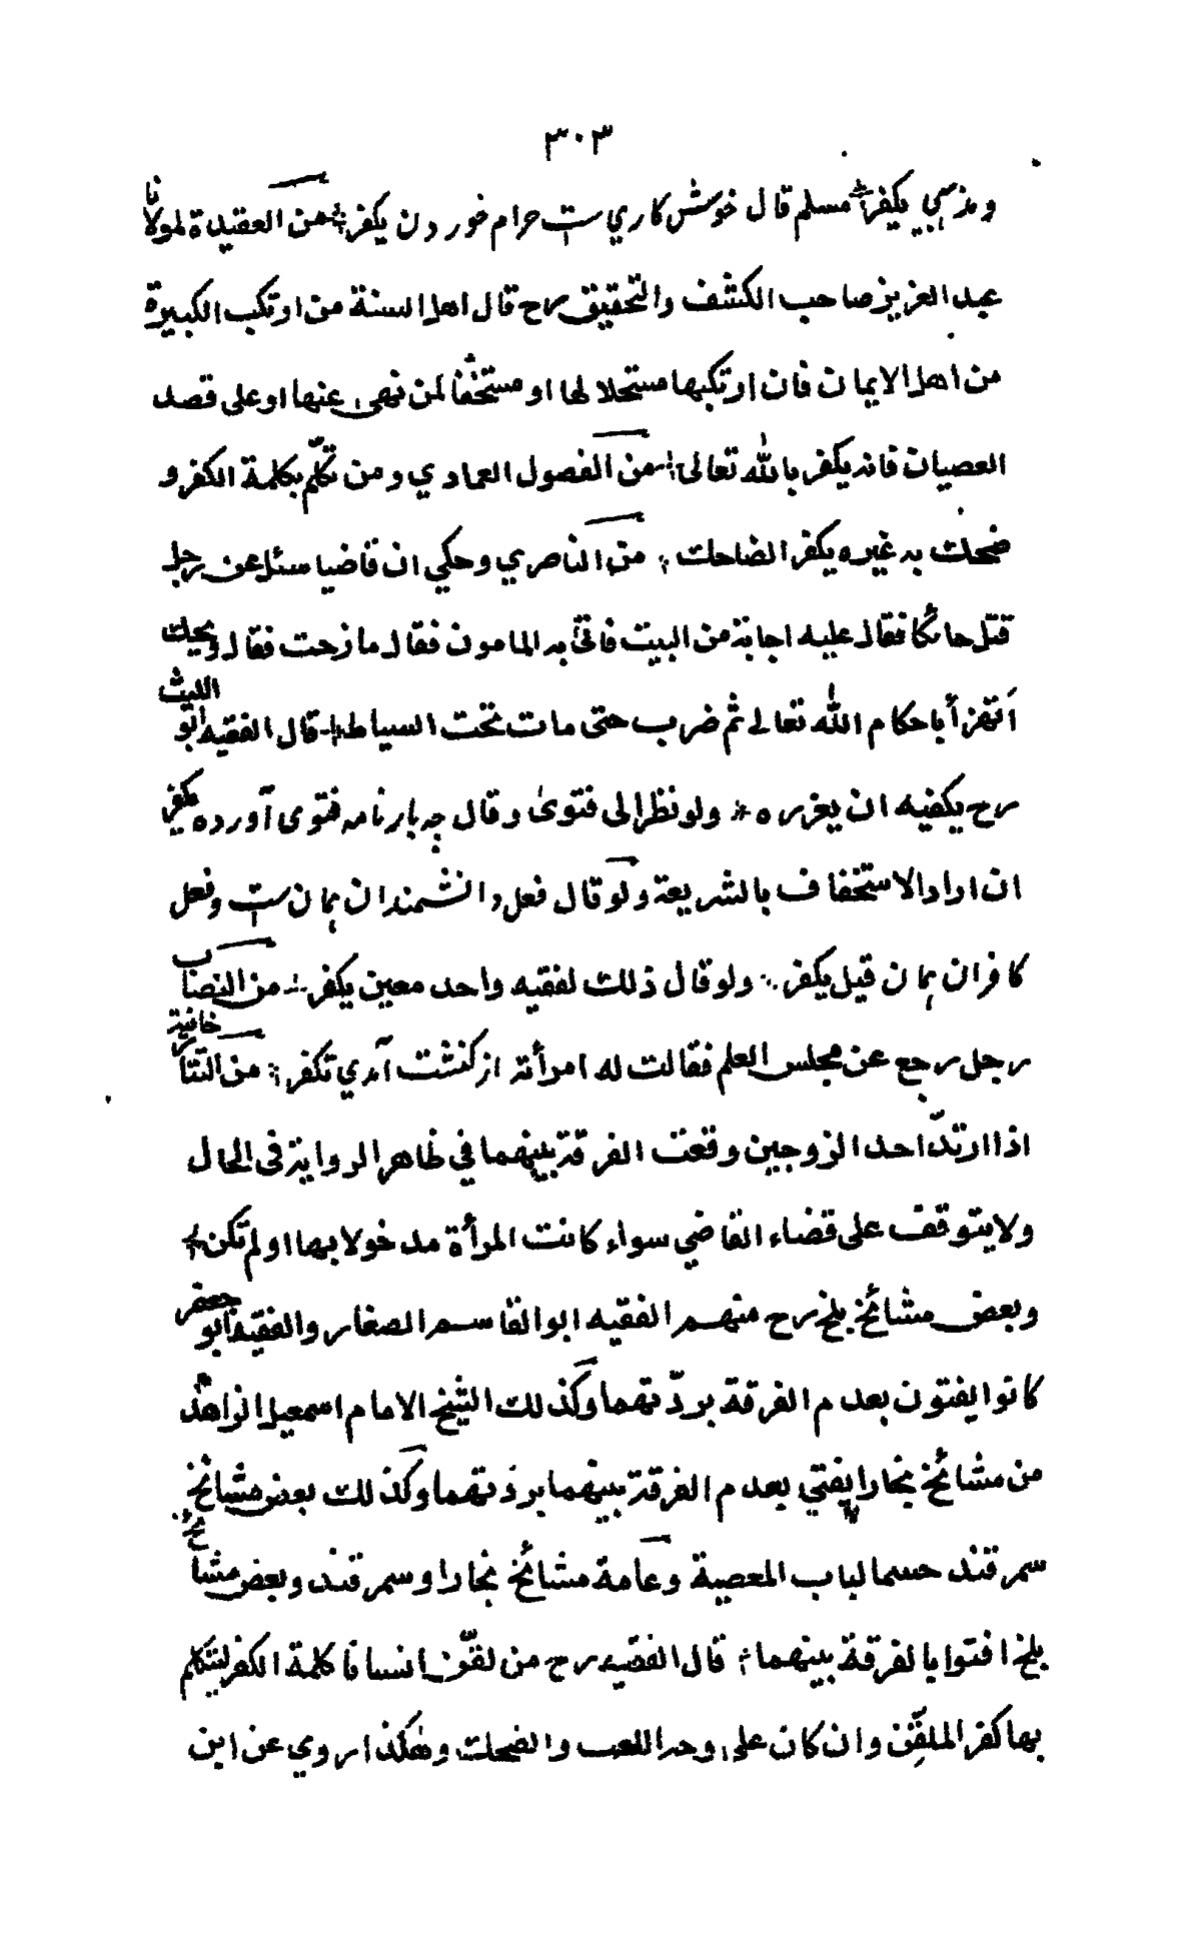 ٣٠٣
ومذهبي يكفر مسلم قال خوش كاري ست حرام خوردن يكفر من العقيدة لمولانا
عبد العزيز صاحب الكشف والتحقيق رح قال اهل السنة من ارتكب الكبيرة
من اهل الايمان فان ارتكبها مستحلا لها او مستخفا لمن نهى عنها او على قصد
العصيان فانه يكفر بالله تعالى من الفصول العمادي ومن تكلّم بكلمة الكفر و
ضحك به غيره يكفر الضاحك من الناصري وحكي ان قاضيا سئل عن رجل
قتل حائكا فقال عليه اجابة من البيت فاتي به المامون فقال مازحت فقال ويحك
أتهزأ باحكام الله تعالى ثم ضرب حتى مات تحت السياط قال الفقيه ابو الليث
رح يكفيه ان يعزره ولو نظر الى فتوى وقال چه بارنامه فتوى آورده يكفر
ان اراد الاستخفاف بالشريعة ولو قال فعل دانشمندان همان ست وفعل
كافران همان قيل يكفر ولو قال ذلك لفقيه واحد معين يكفر من النصاب
رجل رجع عن مجلس العلم فقالت له امرأته از كنشت آمدي تكفر من التتارخانية
اذا ارتدّ احد الزوجين وقعت الفرقة بينهما في ظاهر الرواية فى الحال
ولا يتوقف على قضاء القاضي سواء كانت المرأة مدخولا بها او لم تكن
وبعض مشائخ بلخ رح منهم الفقيه ابو القاسم الصفار والفقيه ابو جعفر
كانوا يفتون بعدم الفرقة بردّتهما وكذلك الشيخ الامام اسمعيل الزاهد
من مشائخ بخارا يفتي بعدم الفرقة بينهما بردتهما وكذلك بعض مشائخ
سمرقند حسما لباب المعصية وعامة مشائخ بخارا وسمرقند وبعض مشائخ
بلخ افتوا بالفرقة بينهما قال الفقيه رح من لقّن انسانا كلمة الكفر ليتكلم
بها كفر الملقّن وان كان على وجه اللعب والضحك وهكذا روي عن ابن